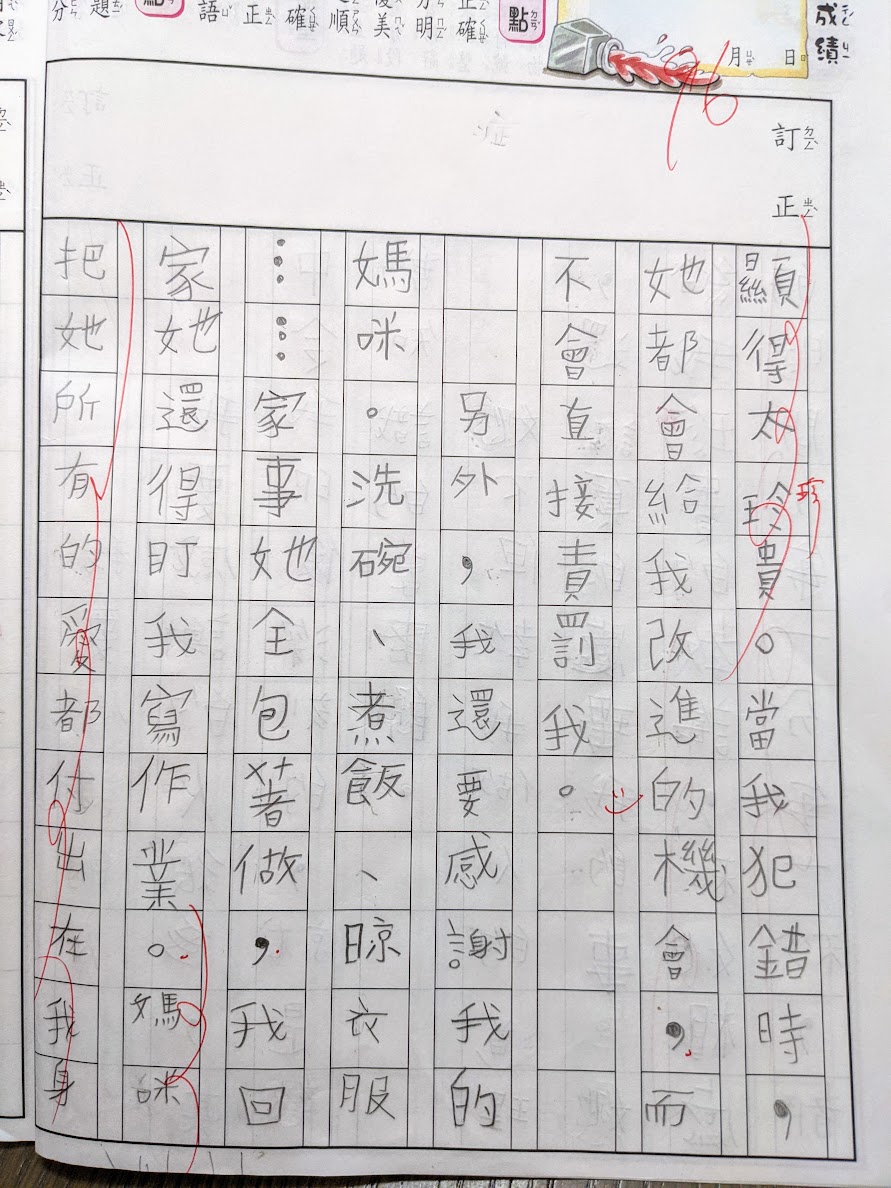 成績
月 日
96
點
正確
明
美
順
確
正
語
題
分
訂正
顯得太珍貴。當我犯錯時，
珍
她都會給我改進的機會，而
不會直接責罰我。
另外，我還要感謝我的
媽咪。洗碗、煮飯、晾衣服
……家事她全包著做，我回
家她還得盯我寫作業。媽咪
把她所有的愛都付出在我身